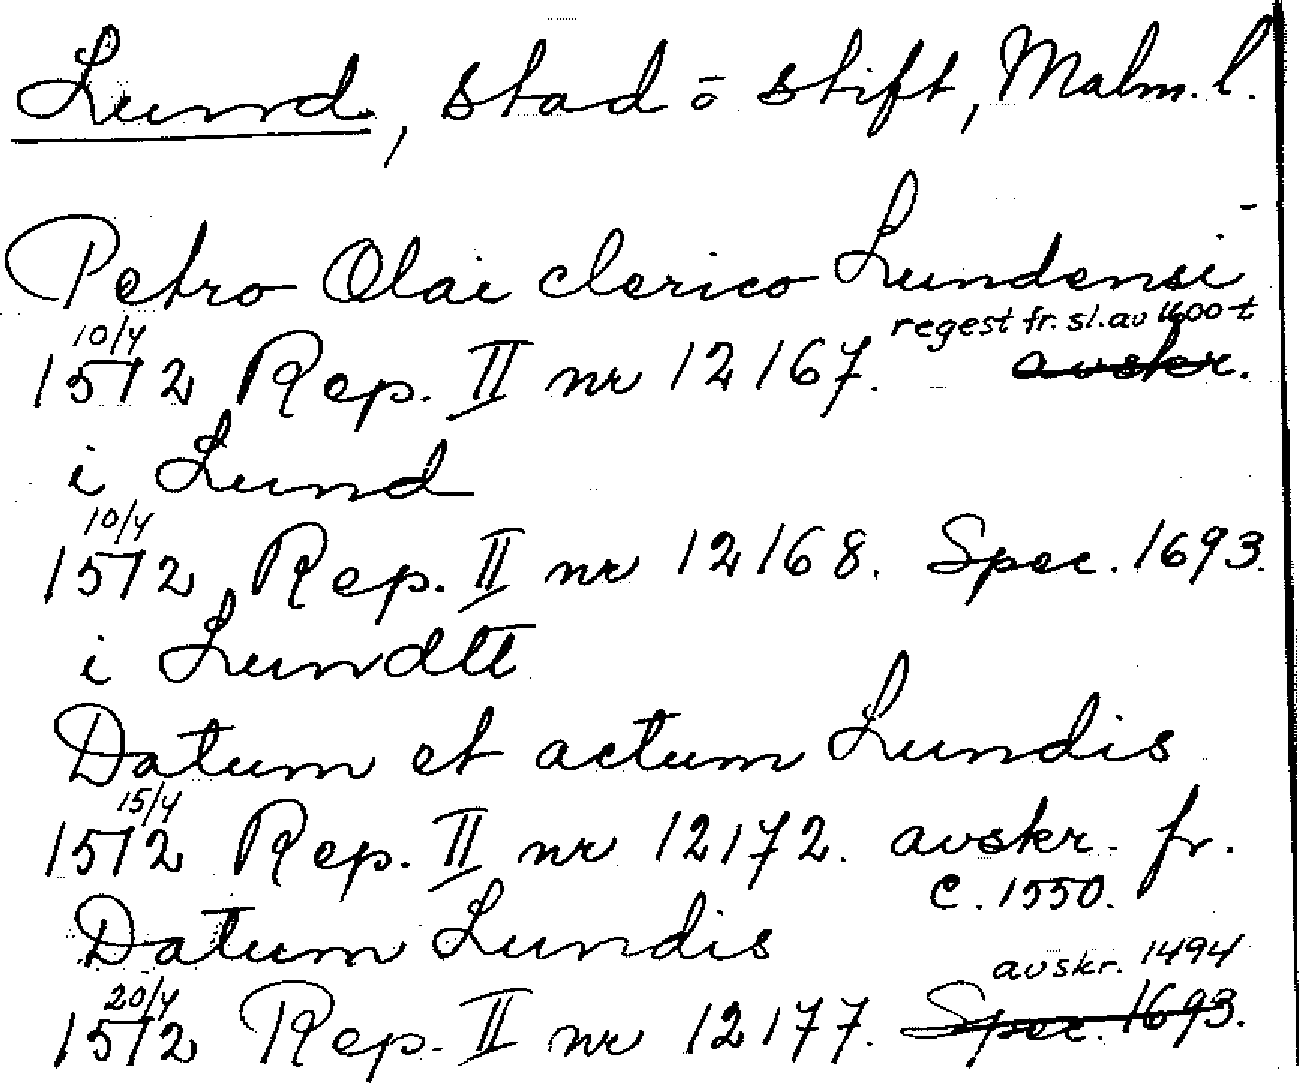 Lund, stad ō stift, Malm. l.
Petro Olai clerico Lundensi
10/4 regest fr. sl. av 1600-t
1512 Rep. II nr 12167. avskr.
i Lund
10/4
1512 Rep. II nr 12168. Spec. 1693.
i Lundtt
Datum et actum Lundis
15/4
1512 Rep. II nr 12172. avskr. fr.
c. 1550.
Datum Lundis
avskr. 1494
20/4
1512 Rep. II nr 12177. Spec. 1693.